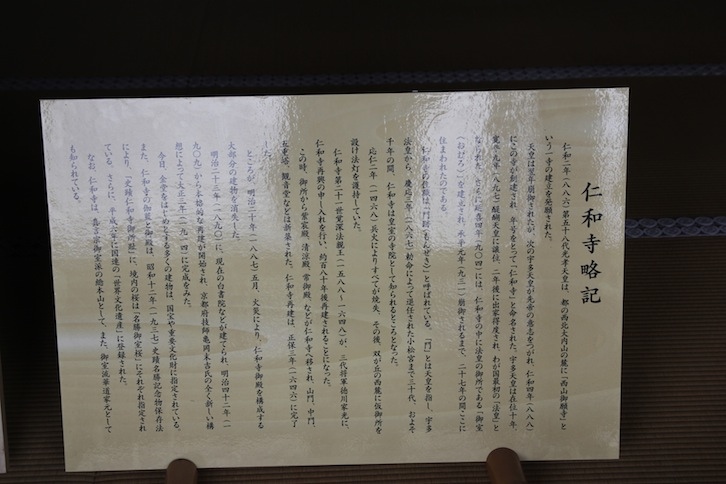 仁和寺略記
仁和二年(八八六)第五十八代光孝天皇は、都の西北大内山の麓に「西山御願寺」と
いう一寺の建立を発願された。
天皇は翌年崩御されたが、次の宇多天皇が先帝の意志をつがれ、仁和四年(八八八)
にこの寺が創建され、年号をとって「仁和寺」と命名された。宇多天皇は在位十年、
寛平九年(八九七)醍醐天皇に譲位、二年後に出家得度され、わが国最初の「法皇」と
なられた。さらに、延喜四年(九〇四)には、仁和寺の中に法皇の御所である「御室
(おむろ)」を建立され、承平元年(九三一)崩御されるまで、二十七年の間ここに
住まわれたのである。
仁和寺の性格は「門跡(もんぜき)」と呼ばれている。「門」とは天皇を指し、宇多
法皇から、慶応三年(一八六七)勅命によって還任された小松宮まで三十代、およそ
千年の間、仁和寺は皇室の寺院として知られるところとなった。
応仁二年(一四六八)兵火によりすべてが焼失、その後、双が丘の西麓に仮御所を
設け法灯を護持していた。
仁和寺第二十一世覚深法親王(一五八八〜一六四八)が、三代将軍徳川家光に、
仁和寺再興の申し入れを行い、約百八十年後再建されることになった。
この時、御所から紫宸殿、清涼殿、常御殿、などが仁和寺へ移され、山門、中門、
五重塔、観音堂などは新築された。仁和寺再建は、正保三年(一六四六)に完了
した。
ところが、明治二十年(一八八七)五月、火災により、仁和寺御殿を構成する
大部分の建物を消失した。
明治二十三年(一八九〇)に、現在の白書院などが建てられ、明治四十二年(一
九〇九)から本格的な再建が開始され、京都府技師亀岡末吉氏の全く新しい構
想によって大正三年(一九一四)に完成をみた。
今日、金堂をはじめとする多くの建物は、国宝や重要文化財に指定されている。
また、仁和寺の伽藍と御殿は、昭和十二年(一九三七)史蹟名勝記念物保存法
により、「史蹟仁和寺御所跡」に、境内の桜は「名勝御室桜」にそれぞれ指定され
ている。さらに、平成六年に国連の「世界文化遺産」に登録された。
なお、仁和寺は、真言宗御室派の総本山として、また、御室流華道家元として
も知られている。